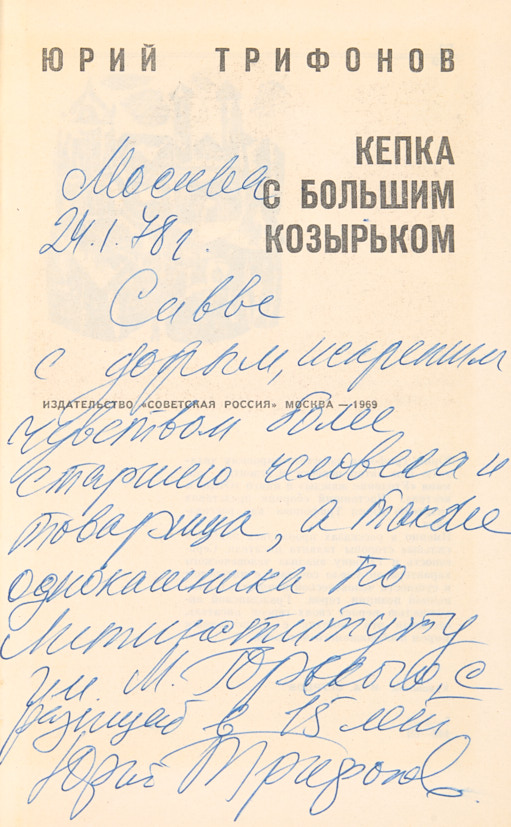 ЮРИЙ ТРИФОНОВ
КЕПКА
С БОЛЬШИМ
КОЗЫРЬКОМ
Москва
24.1.78 г.
Савве
с добрым, искренним
ИЗДАТЕЛЬСТВО «СОВЕТСКАЯ РОССИЯ» МОСКВА — 1969
чувством более
старшего человека и
товарища, а также
однокашника по
Литинституту
им М. Горького, с
разницей в 15 лет
Юрий Трифонов.